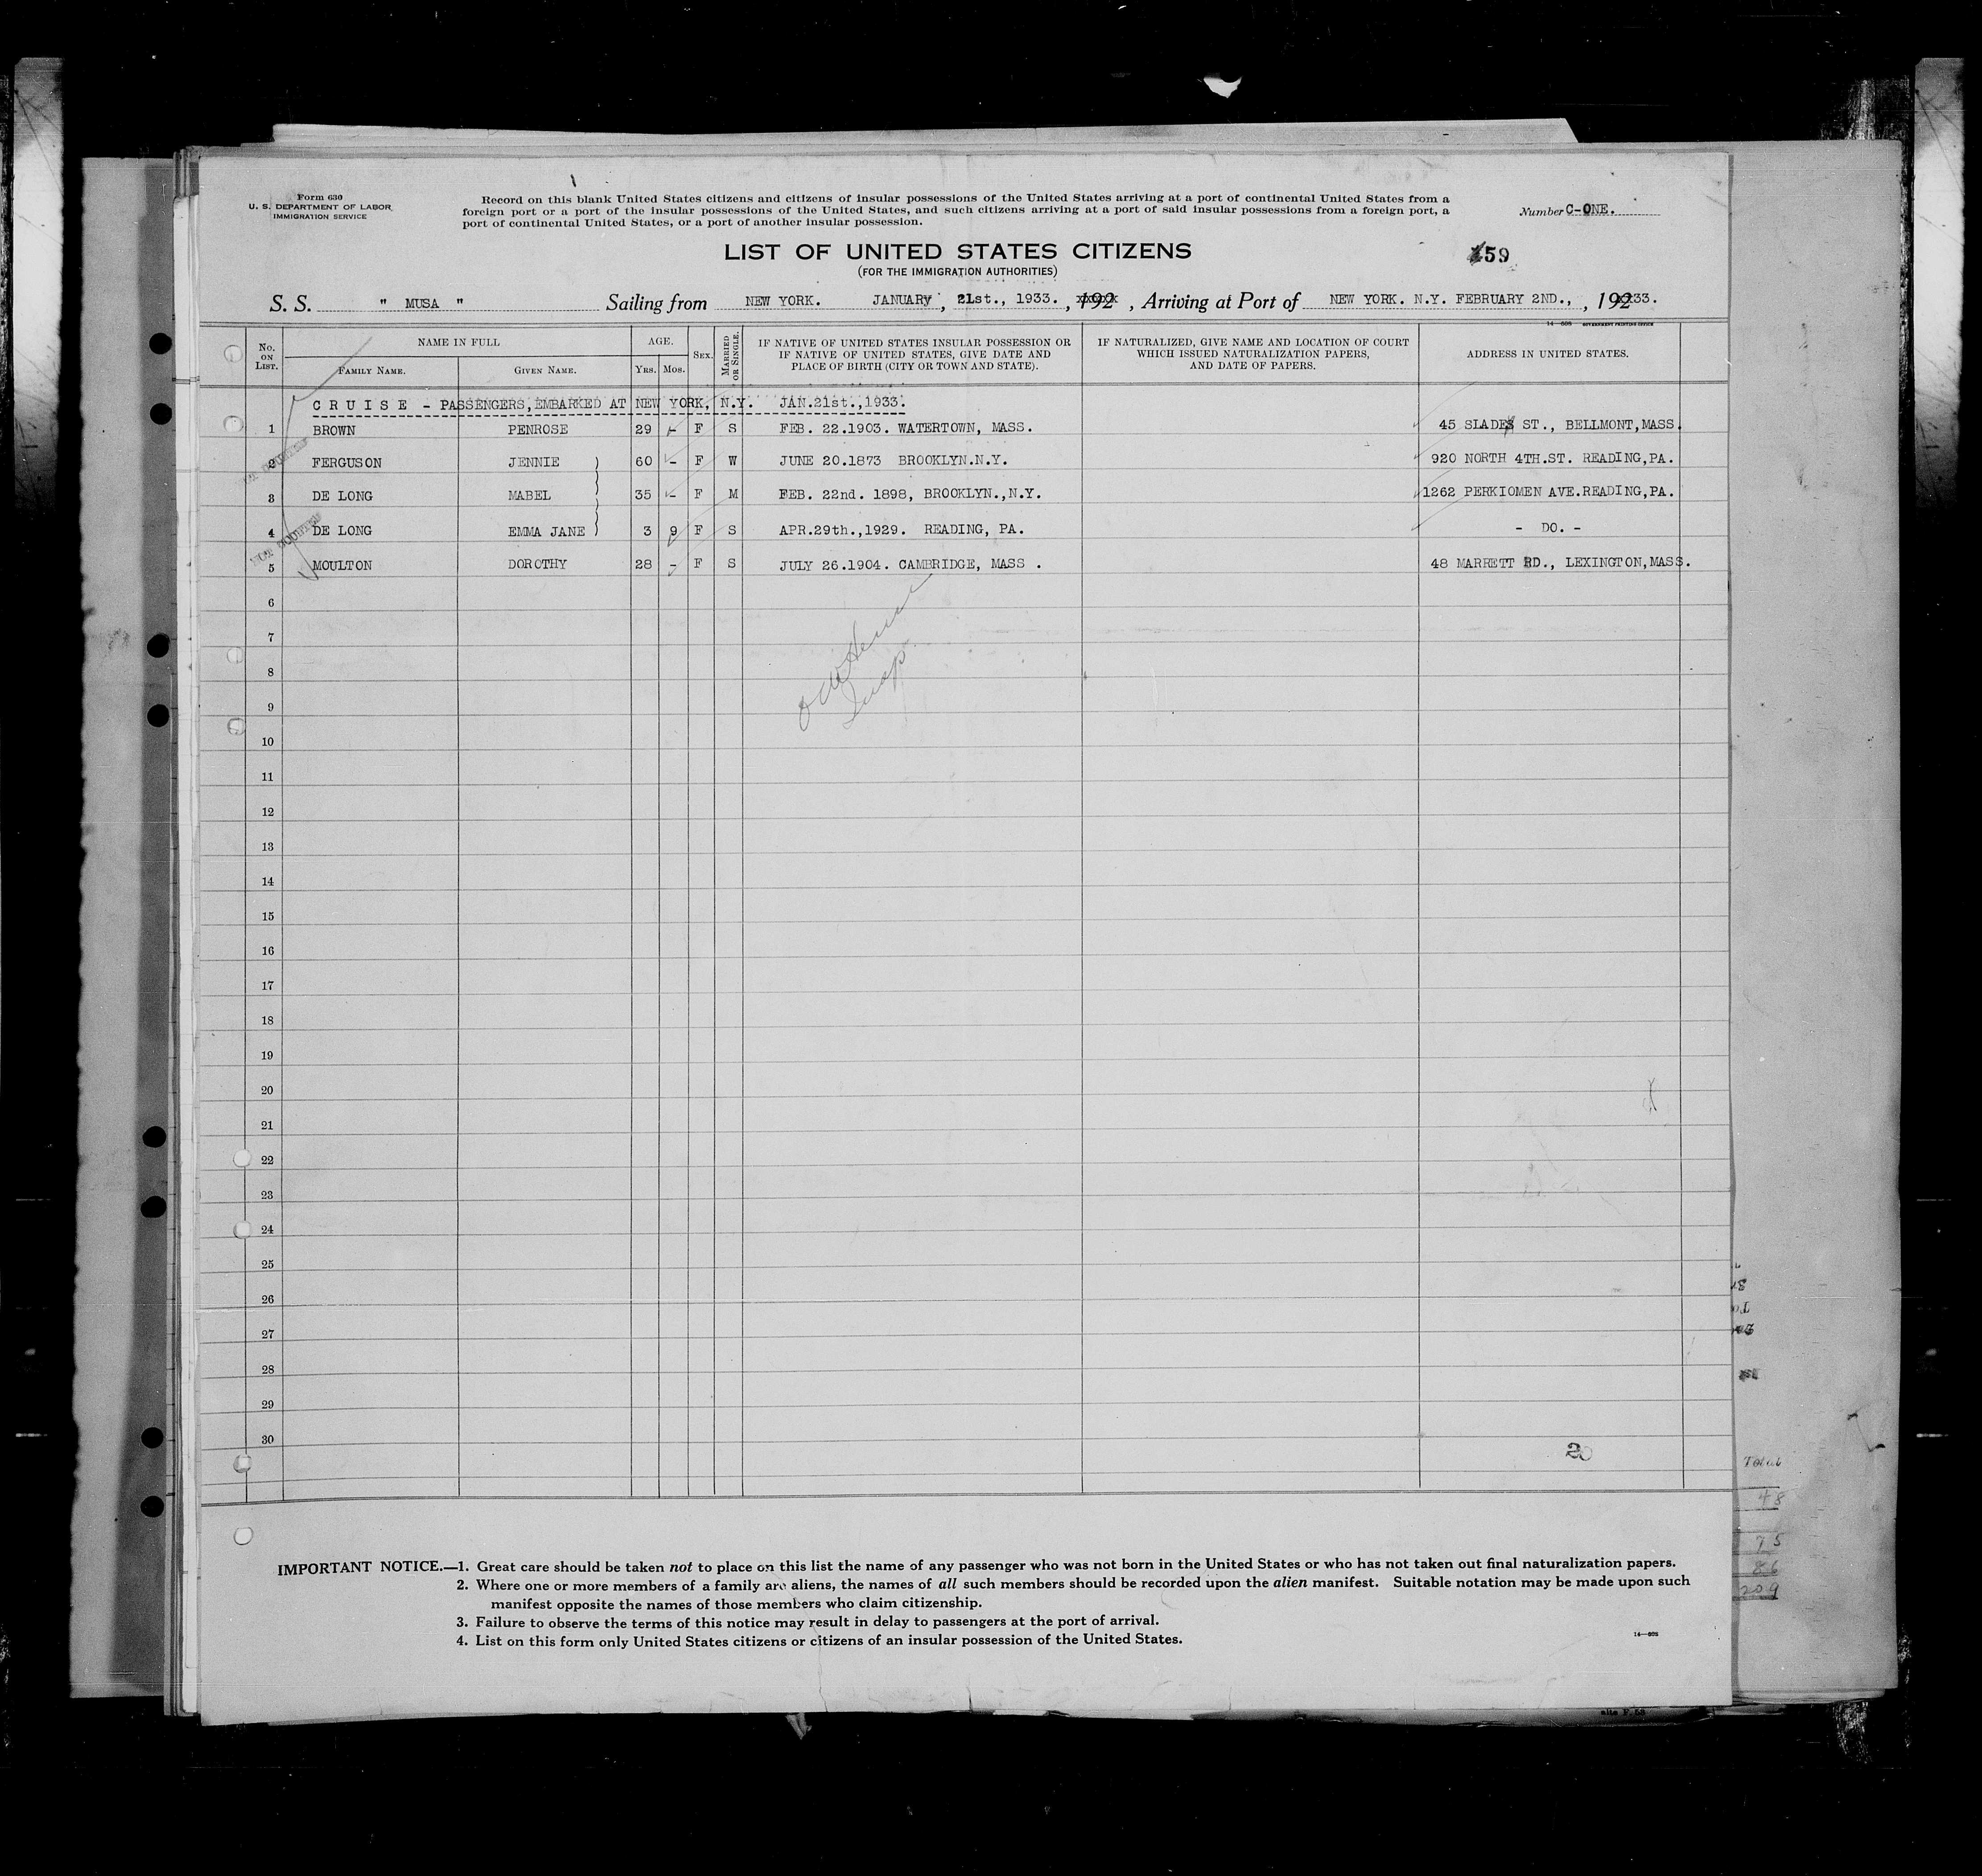 Form 630
U. S. DEPARTMENT OF LABOR
IMMIGRATION SERVICE
Record on this blank United States citizens and citizens of insular possessions of the United States arriving at a port of continental United States from a
foreign port or a port of the insular possessions of the United States, and such citizens arriving at a port of said insular possessions from a foreign port, a
port of continental United States, or a port of another insular possession.
Number C-ONE.
LIST OF UNITED STATES CITIZENS
(FOR THE IMMIGRATION AUTHORITIES)
59
S. S. " MUSA " Sailing from NEW YORK. JANUARY, 21st., 1933., 192 , Arriving at Port of NEW YORK. N.Y. FEBRUARY 2ND., , 19233.
14—808 GOVERNMENT PRINTING OFFICE
No. ON LIST. NAME IN FULL AGE. SEX. MARRIED OR SINGLE. IF NATIVE OF UNITED STATES INSULAR POSSESSION OR IF NATIVE OF UNITED STATES, GIVE DATE AND PLACE OF BIRTH (CITY OR TOWN AND STATE). IF NATURALIZED, GIVE NAME AND LOCATION OF COURT WHICH ISSUED NATURALIZATION PAPERS, AND DATE OF PAPERS. ADDRESS IN UNITED STATES.
FAMILY NAME. GIVEN NAME. YRS. MOS.
CRUISE - PASSENGERS, EMBARKED AT NEW YORK, N.Y. JAN.21st.,1933.
1 BROWN PENROSE 29 - F S FEB. 22.1903. WATERTOWN, MASS. 45 SLADE ST., BELLMONT,MASS.
2 FERGUSON JENNIE 60 - F W JUNE 20.1873 BROOKLYN.N.Y. 920 NORTH 4TH.ST. READING,PA.
3 DE LONG MABEL 35 - F M FEB. 22nd. 1898, BROOKLYN.,N.Y. 1262 PERKIOMEN AVE.READING,PA.
4 DE LONG EMMA JANE 3 9 F S APR.29th.,1929. READING, PA. - DO. -
NOT COUNTED
5 MOULTON DOROTHY 28 - F S JULY 26.1904. CAMBRIDGE, MASS . 48 MARRETT RD., LEXINGTON,MASS.
6
7
Insp
8
9
10
11
12
13
14
15
16
17
18
19
20
21
22
23
24
25
26
27
28
29
30
20
Total
48
75
86
209
IMPORTANT NOTICE.—1. Great care should be taken not to place on this list the name of any passenger who was not born in the United States or who has not taken out final naturalization papers.
2. Where one or more members of a family are aliens, the names of all such members should be recorded upon the alien manifest. Suitable notation may be made upon such
manifest opposite the names of those members who claim citizenship.
3. Failure to observe the terms of this notice may result in delay to passengers at the port of arrival.
4. List on this form only United States citizens or citizens of an insular possession of the United States.
14—808